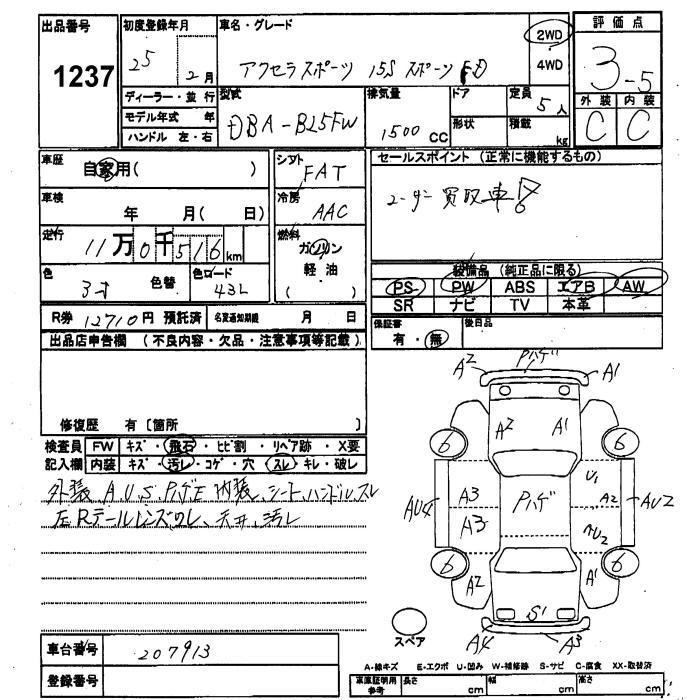 出品番号
1237
初度登録年月
25
2月
車名・グレード
アクセラスポーツ 15S スポーツ FD
2WD
4WD
評価点
3-5
外装 内装
C C
ディーラー・並行
モデル年式 年
ハンドル 左・右
型式
DBA-BL5FW
排気量
1500 CC
ドア
形状
定員
5人
積載
kg
車歴
自家用( )
車検
年 月( 日)
走行
11万0千516km
色
3オ
色替
色コード
43L
シフト
FAT
冷房
AAC
燃料
ガソリン
軽油
( )
セールスポイント (正常に機能するもの)
ユーザー買取車
装備品 (純正品に限る)
PS PW ABS エアB AW
SR ナビ TV 本革
R券 12710円 預託済 名変通知期限 月 日
保証書
有・無
後日品
出品店申告欄 (不良内容・欠品・注意事項等記載)
修復歴 有〔箇所 〕
検査員
記入欄
FW キズ・飛石・ヒビ割・リペア跡・X要
内装 キズ・汚レ・コゲ・穴・スレ・キレ・破レ
外装 A、U、S、Pハゲ、E 内装、シート、ハンドルスレ
左Rテールレンズワレ、天井、汚レ
A2 Pハゲ A1
A2 A1
6 6
U1
AU4 A3 Pハゲ A2 AU2
A3 U2
6 6
A2 A1
S1
A4 A3
スペア
車台番号
207913
登録番号
A-線キズ E-エクボ U-凹み W-補修跡 S-サビ C-腐食 XX-取替済
車庫証明用
参考
長さ cm
幅 cm
高さ cm